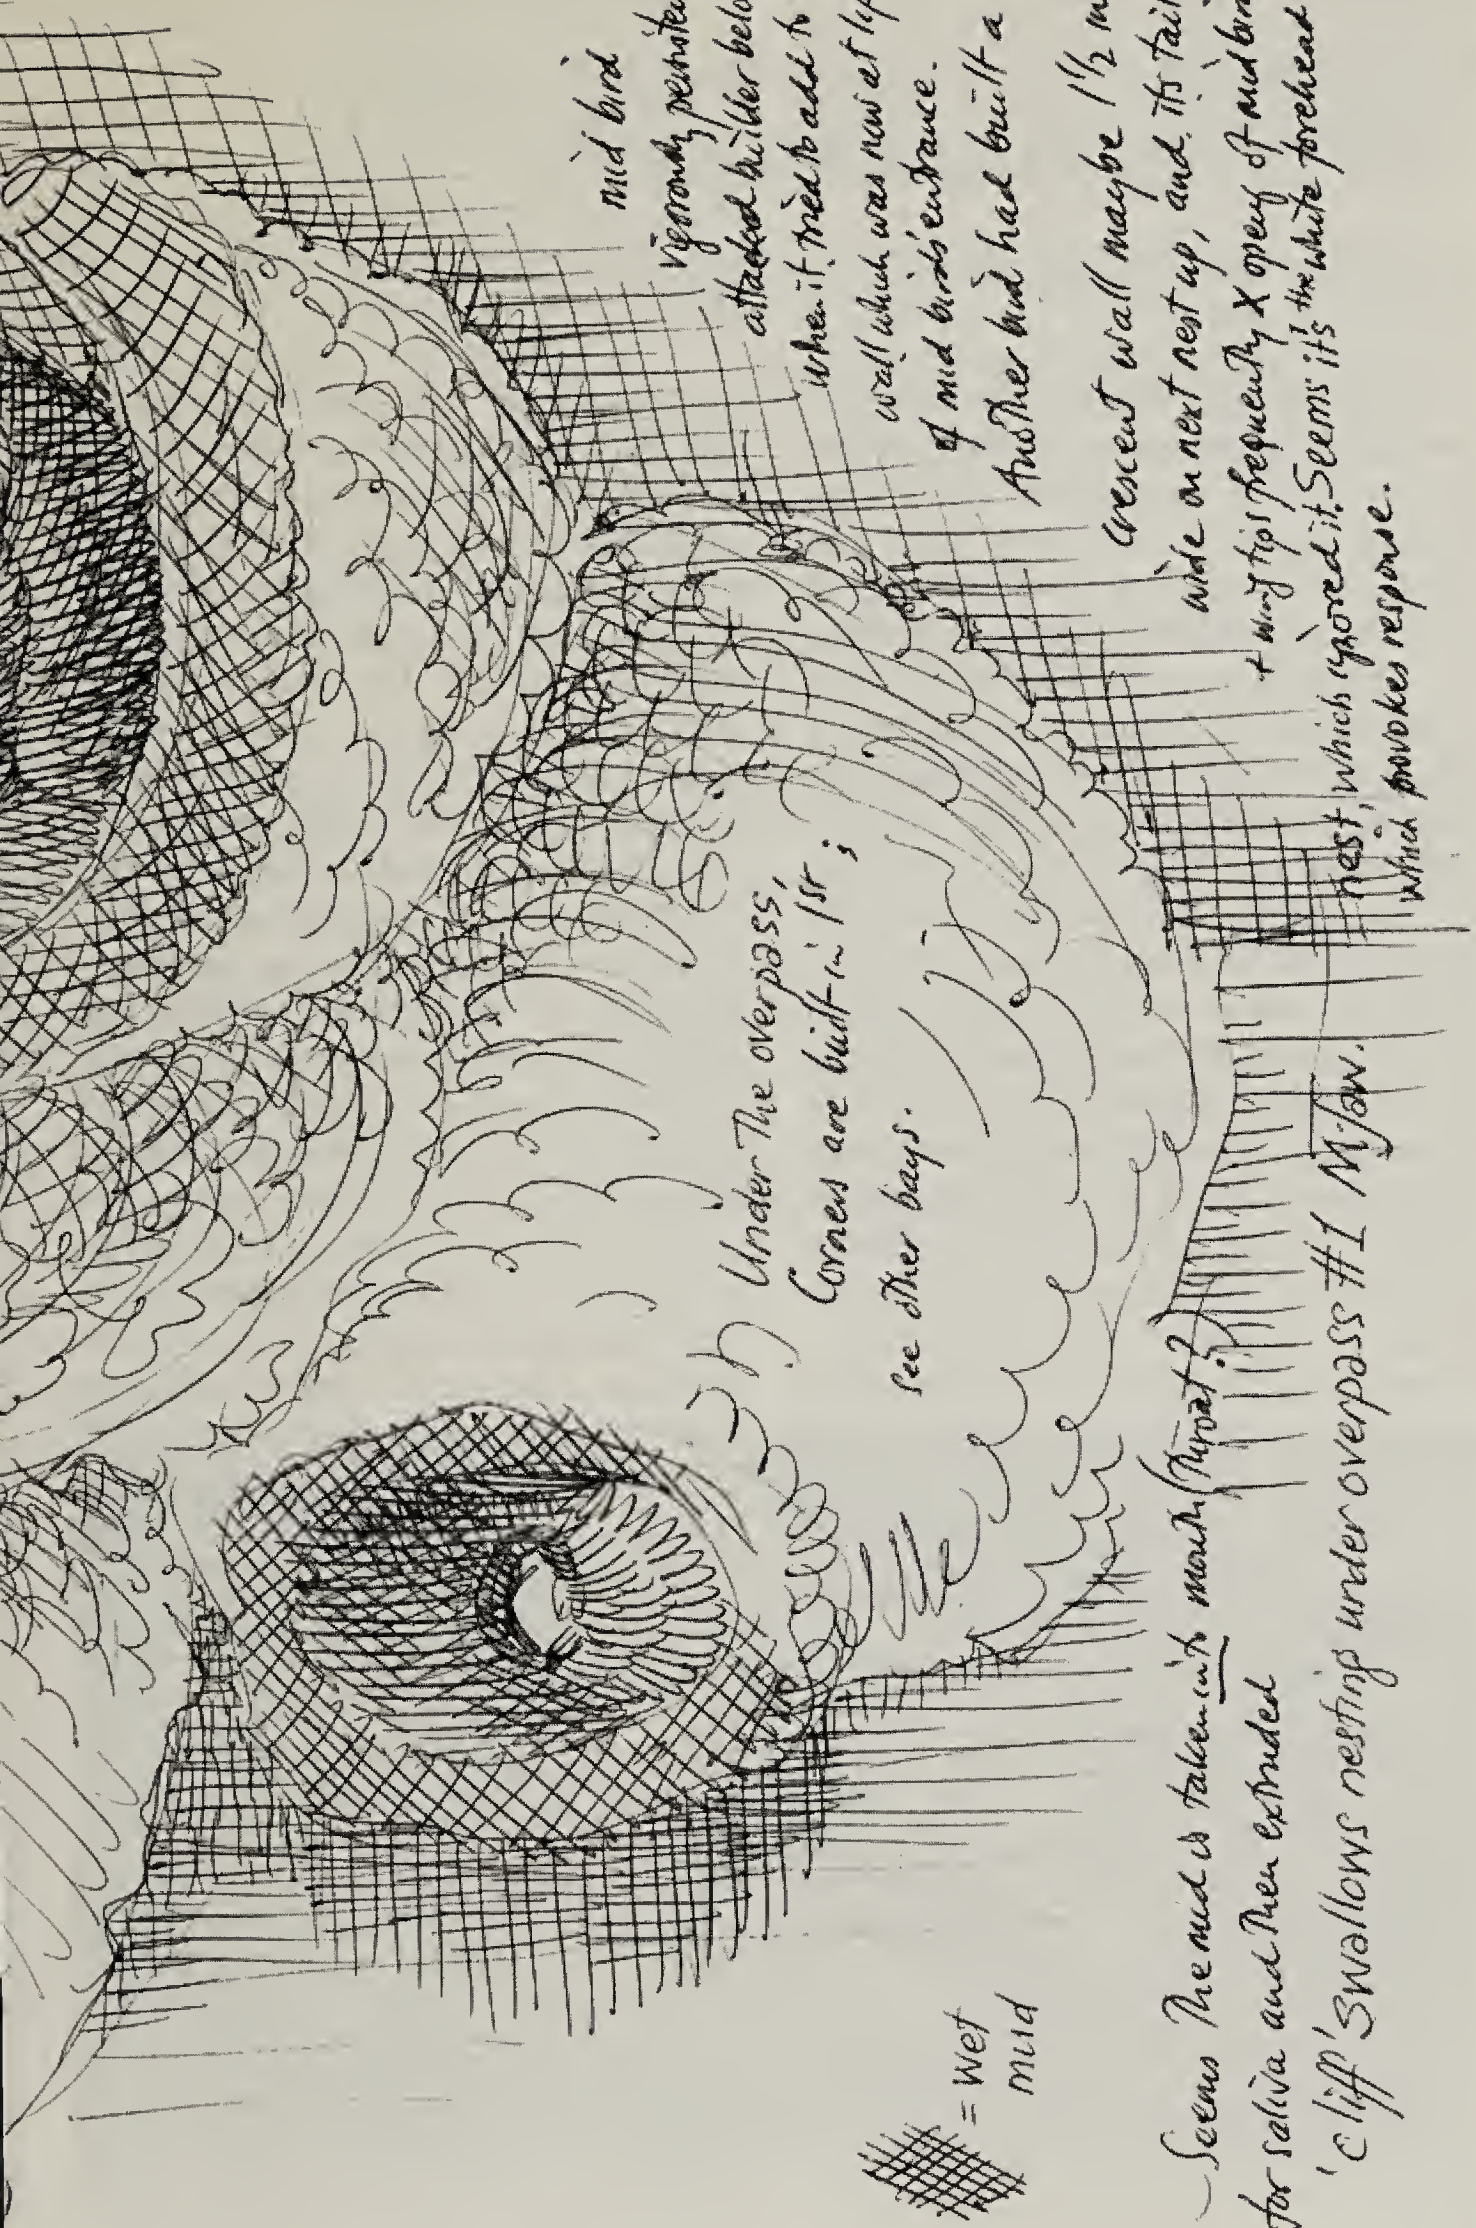 mid bird
vigorously
attacked builder
when it tried to add to
wall which was now at lip
of mid bird's entrance.
Another bird had built a
crescent wall maybe 1½
wide on next nest up, and its tail
+ wing tips frequently X openg of mid
nest, which ignored it. Seems it's the white forehead
which provokes response.
Under The overpass,
Corners are built-in 1st;
see other bays.
= wet
mud
– Seems The mud is taken into mouth (Throat?)
for saliva and Then extruded
'cliff' Swallows nesting under overpass #1 MJaw.